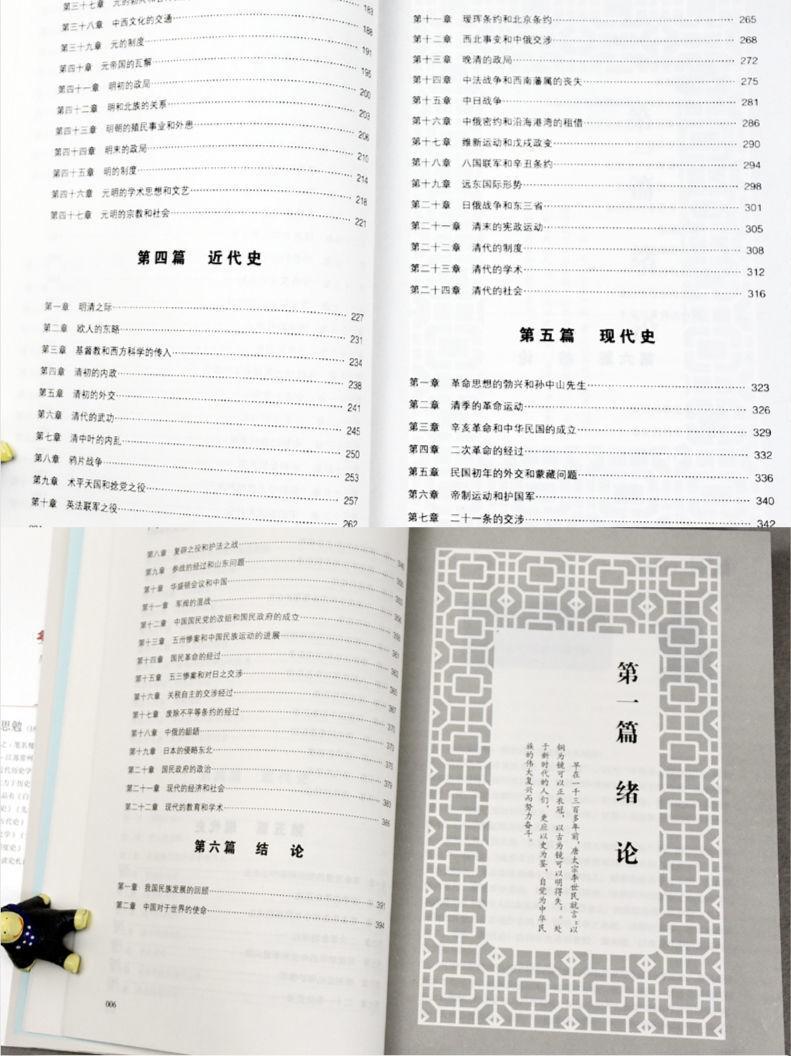 第三十八章 中西文化的交通 188
第三十九章 元的制度 191
第四十章 元帝国的瓦解 195
第四十一章 明初的政局 200
第四十二章 明和北族的关系 203
第四十三章 明朝的殖民事业和外患 206
第四十四章 明末的政局 210
第四十五章 明的制度 214
第四十六章 元明的学术思想和文艺 218
第四十七章 元明的宗教和社会 221
第四篇 近代史
第一章 明清之际 227
第二章 欧人的东略 231
第三章 基督教和西方科学的传入 234
第四章 清初的内政 238
第五章 清初的外交 241
第六章 清代的武功 245
第七章 清中叶的内乱 250
第八章 鸦片战争 253
第九章 太平天国和捻党之役 257
第十章 英法联军之役 262
第十一章 瑷珲条约和北京条约 265
第十二章 西北事变和中俄交涉 268
第十三章 晚清的政局 272
第十四章 中法战争和西南藩属的丧失 275
第十五章 中日战争 281
第十六章 中俄密约和沿海港湾的租借 286
第十七章 维新运动和戊戌政变 290
第十八章 八国联军和辛丑条约 294
第十九章 远东国际形势 298
第二十章 日俄战争和东三省 301
第二十一章 清末的宪政运动 305
第二十二章 清代的制度 308
第二十三章 清代的学术 312
第二十四章 清代的社会 316
第五篇 现代史
第一章 革命思想的勃兴和孙中山先生 323
第二章 清季的革命运动 326
第三章 辛亥革命和中华民国的成立 329
第四章 二次革命的经过 332
第五章 民国初年的外交和蒙藏问题 336
第六章 帝制运动和护国军 340
第七章 二十一条的交涉 342
第八章 复辟之役和护法之战
第九章 参战的经过和山东问题
第十章 华盛顿会议和中国
第十一章 军阀的混战
第十二章 中国国民党的改组和国民政府的成立
第十三章 五卅惨案和中国民族运动的进展
第十四章 国民革命的经过
第十五章 五三惨案和对日之交涉
第十六章 关税自主的交涉经过
第十七章 废除不平等条约的经过
第十八章 中俄的龃龉
第十九章 日本的侵略东北
第二十章 国民政府的政治
第二十一章 现代的经济和社会
第二十二章 现代的教育和学术
第六篇 结论
第一章 我国民族发展的回顾 391
第二章 中国对于世界的使命 394
006
第一篇 绪论
早在一千三百多年前，唐太宗李世民就言：以
铜为镜可以正衣冠，以古为镜可以明得失。处
于新时代的人们，更应以史为鉴，自觉为中华民
族的伟大复兴而努力奋斗。
思勉